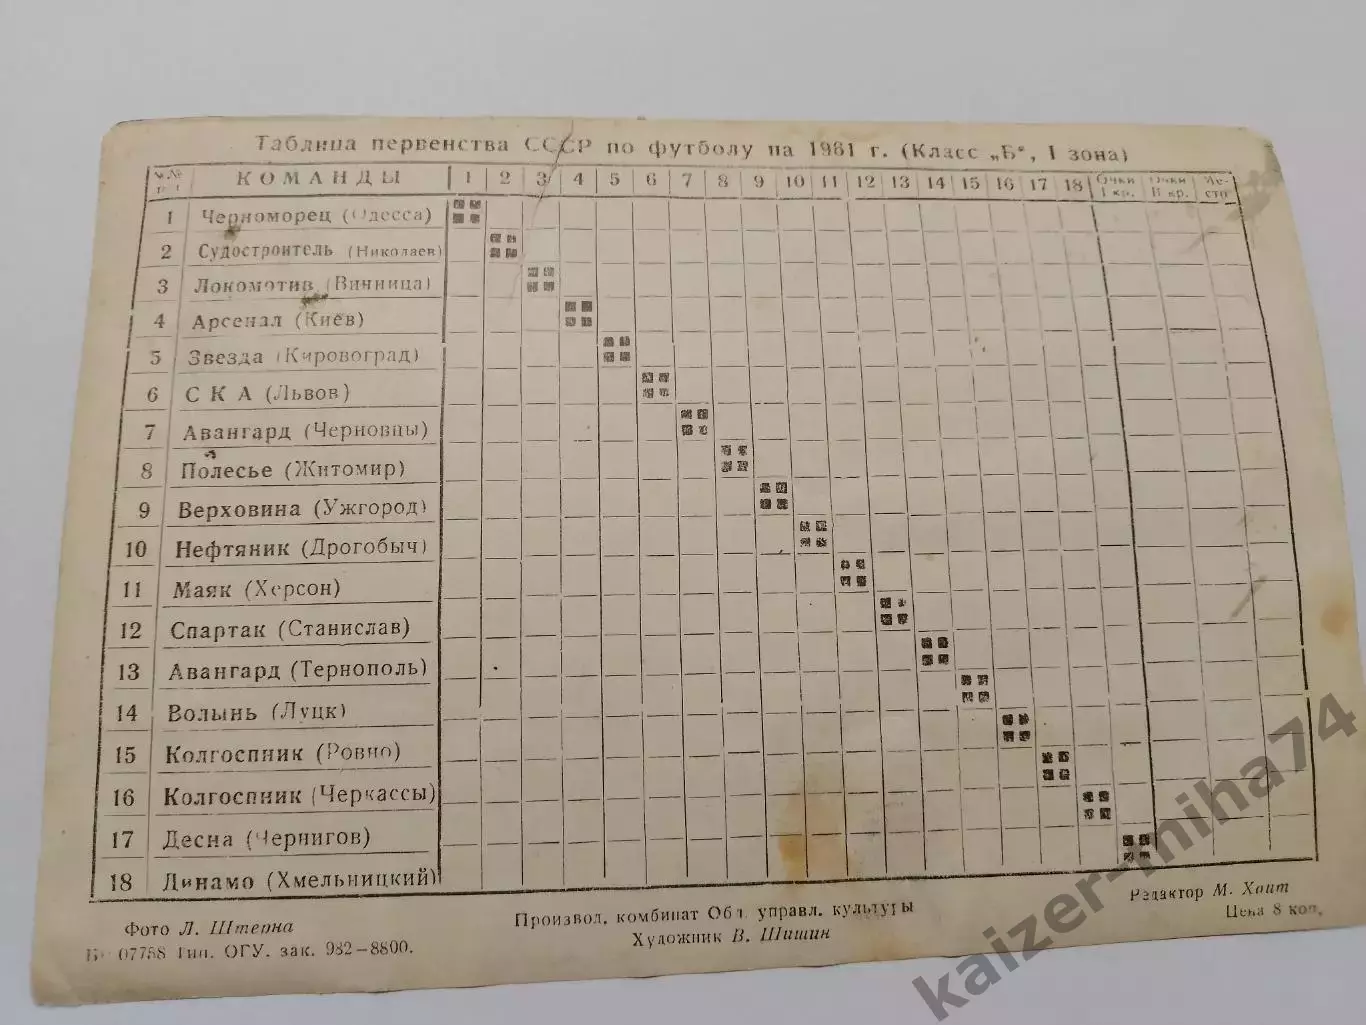 Таблица первенства СССР по футболу на 1961 г. (Класс „Б“, I зона)
№№ КОМАНДЫ 1 2 3 4 5 6 7 8 9 10 11 12 13 14 15 16 17 18 Очки I кр. Очки II кр. Место
1 Черноморец (Одесса)
2 Судостроитель (Николаев)
3 Локомотив (Винница)
4 Арсенал (Киев)
5 Звезда (Кировоград)
6 СКА (Львов)
7 Авангард (Черновцы)
8 Полесье (Житомир)
9 Верховина (Ужгород)
10 Нефтяник (Дрогобыч)
11 Маяк (Херсон)
12 Спартак (Станислав)
13 Авангард (Тернополь)
14 Волынь (Луцк)
15 Колгоспник (Ровно)
16 Колгоспник (Черкассы)
17 Десна (Чернигов)
18 Динамо (Хмельницкий)
Фото Л. Штерна
Произвол. комбинат Обл. управл. культуры
Редактор М. Хаит
07788 Тип. ОГУ. зак. 982-8800.
Художник В. Шишин
Цена 8 коп.
kaizer-miha74